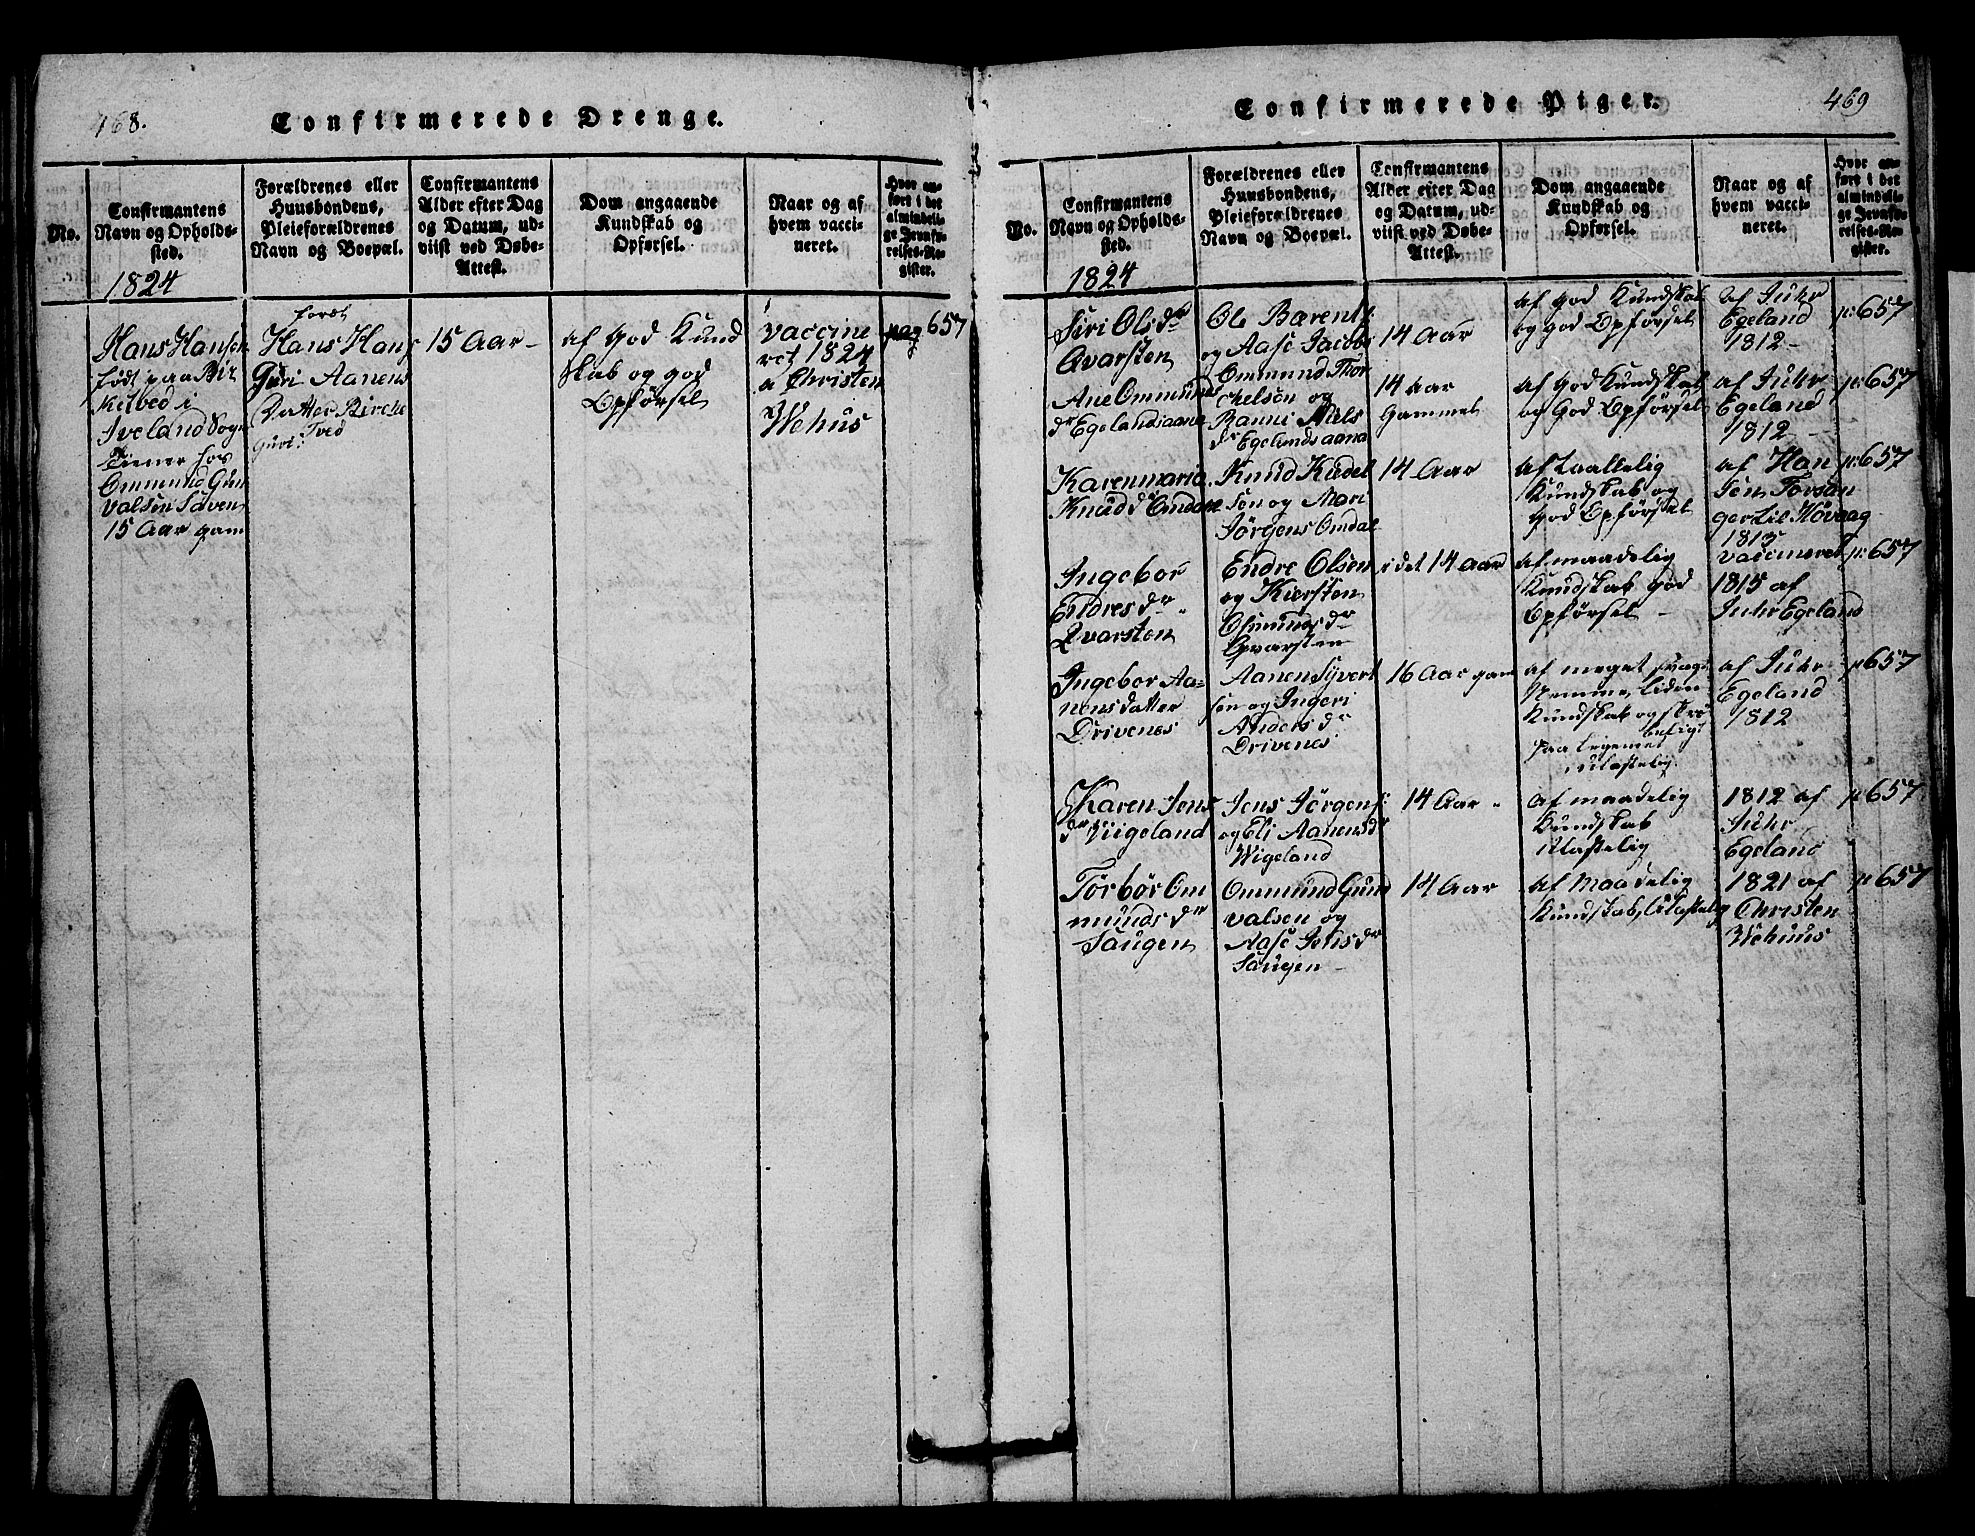 468.
Confirmerede Drenge.
No.
Confirmantens
Navn og Opholds-
sted.
1824
Forældrenes eller
Huusbondens,
Pleieforældrenes
Navn og Boepæl.
Confirmantens
Alder efter Dag
og Datum, ud-
viist ved Døbe-
Attest.
Dom angaaende
Kundskab og
Opførsel.
Naar og af
hvem vacci-
neret.
Hvor an-
ført i det
almindeli-
ge Jevnfø-
relses-Re-
gister.
Hans Hansen
født paa Bir
ketved i
Iveland Sogn
Tiener hos
Ommund Gun
valsen Saven
15 Aar gam
Hans Hans
Guri Aanens
Datter Birche
Tved
15 Aar
af God Kund
skab og god
Opførsel
vaccine
ret 1824
a Christen
Wehus
pag 657
469
Confirmerede Piger.
No.
Confirmantens
Navn og Opholds-
sted.
1824
Forældrenes eller
Huusbondens,
Pleieforældrenes
Navn og Boepæl.
Confirmantens
Alder efter Dag
og Datum, ud-
viist ved Døbe-
Attest.
Dom angaaende
Kundskab og
Opførsel.
Naar og af
hvem vacci-
neret.
Hvor an-
ført i det
almindeli-
ge Jevnfø-
relses-Re-
gister.
Siri Olsdr
Qvarsten
Ole Bærents
og Aase Jacobs
14 Aar
af God Kundskab
og god Opførsel
af Juhr
Egeland
1812
p: 657
Ane Ommunds
dr Egelandsaane
Ommund Thor
chelsen og
Ranni Niels
dr Egelandsaane
14 Aar
Gammel
af God Kundskab
og God Opførsel
af Juhr
Egeland
1812
p: 657
Karenmaria
Knud dr Omdal
Knud Kadel
sen og Mari
Jørgens Omdal
14 Aar
af Taallelig
Kundskab og
God Opførsel
af Han
sen Torsan
ger til Høvaag
1813
p: 657
Ingebor
Endres dr
Qvarsten
Endre Olsen
og Kiersten
Osmunds dr
Qvarsten
i det 14 Aar
af maadelig
Kundskab God
Opførsel
vaccineret
1815 af
Juhr Egeland
p: 657
Ingebor Aa-
nensdatter
Drivenes
Aanen Syvert
sen og Ingeri
Anders dr
Drivenes
16 Aar gam
af meget svag
Nemme, liden
Kundskab og skrø
belig
paa Legemet
ulastelig
af Juhr
Egeland
1812
p 657
Karen Jens
dr Viigeland
Jens Jørgens
og Eli Aanensdr
Wigeland
14 Aar
af maadelig
Kundskab
Ulastelig
1812 af
Juhr
Egeland
p 657
Torbør Om
munds dr
Saugen
Ommund Gun
valsen og
Aase Jensdr
Saugen
14 Aar
af Maadelig
Kundskab, Ulastelig
1821 af
Christen
Wehuus
p 657